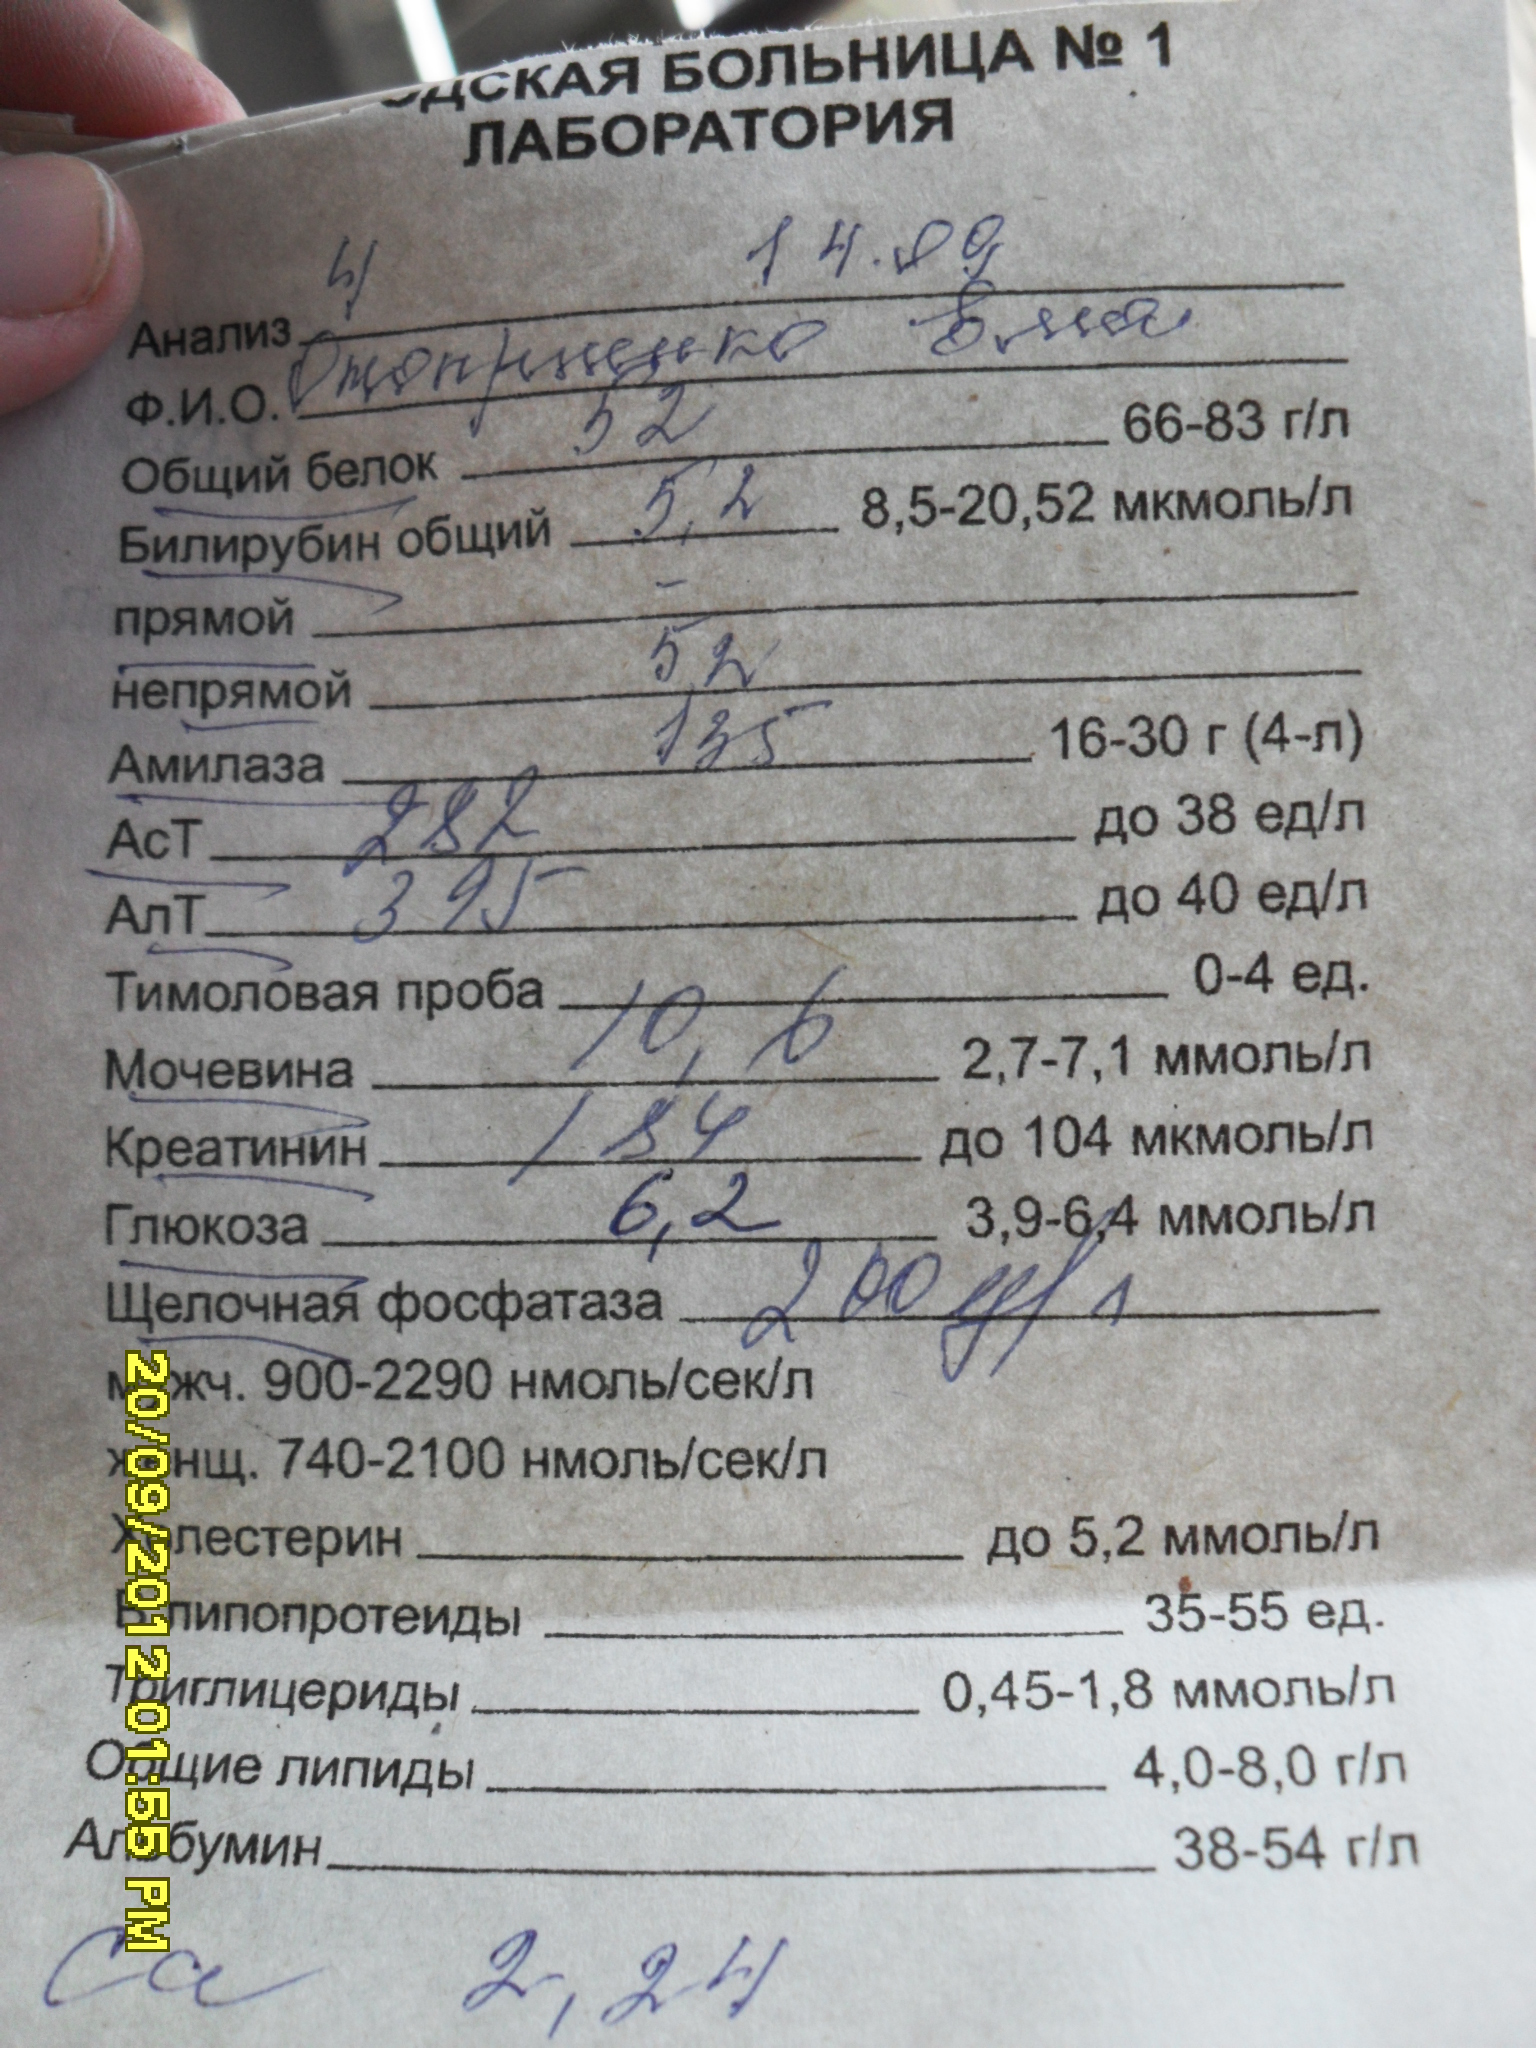 ОДСКАЯ БОЛЬНИЦА № 1
ЛАБОРАТОРИЯ
Анализ 4 14.09
Ф.И.О.
Общий белок 52 66-83 г/л
Билирубин общий 5,2 8,5-20,52 мкмоль/л
прямой -
непрямой 5,2
Амилаза 135 16-30 г (4-л)
АсТ 282 до 38 ед/л
АлТ 395 до 40 ед/л
Тимоловая проба 0-4 ед.
Мочевина 10,6 2,7-7,1 ммоль/л
Креатинин 184 до 104 мкмоль/л
Глюкоза 6,2 3,9-6,4 ммоль/л
Щелочная фосфатаза 200
мужч. 900-2290 нмоль/сек/л
женщ. 740-2100 нмоль/сек/л
Холестерин до 5,2 ммоль/л
В-липопротеиды 35-55 ед.
Триглицериды 0,45-1,8 ммоль/л
Общие липиды 4,0-8,0 г/л
Альбумин 38-54 г/л
Ca 2,24
20/09/2012 01:55 PM